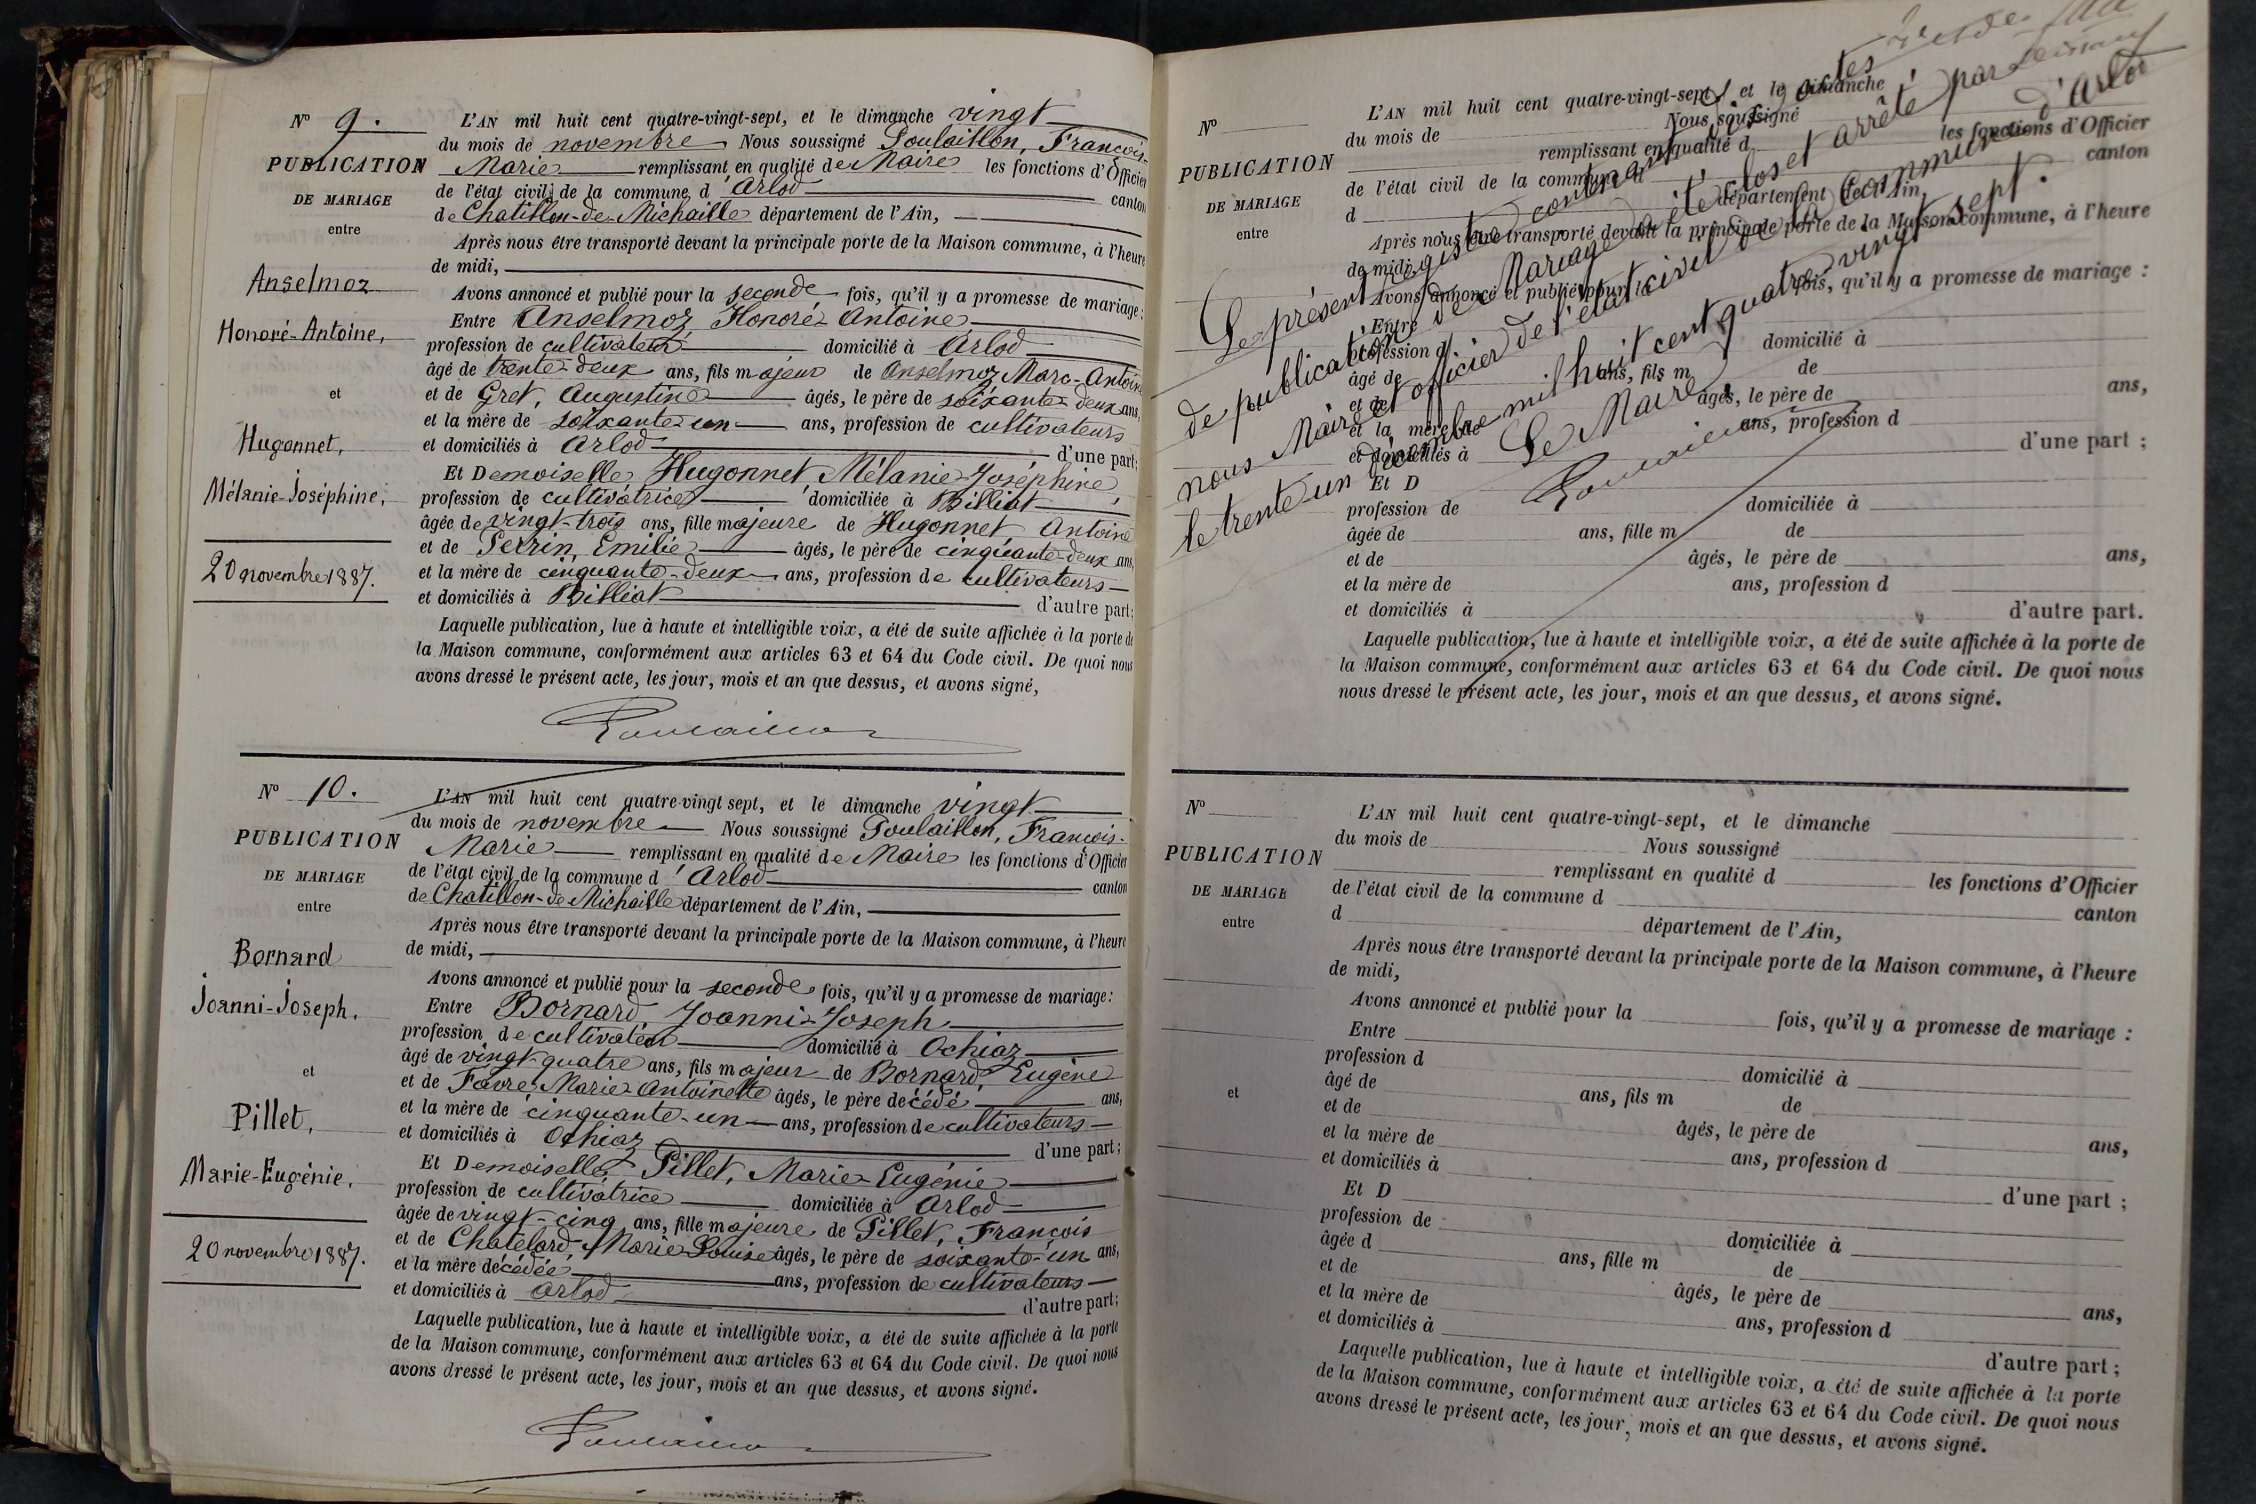 N° 9.
PUBLICATION
DE MARIAGE
entre
Anselmoz
Honoré-Antoine,
et
Hugonnet,
Mélanie-Joséphine,
20 novembre 1887.
L'AN mil huit cent quatre-vingt-sept, et le dimanche vingt
du mois de novembre Nous soussigné Poulaillon, François-
Marie remplissant en qualité de Maire les fonctions d'Officier
de l'état civil de la commune d'Arlod canton
de Chatillon-de-Michaille département de l'Ain,
Après nous être transporté devant la principale porte de la Maison commune, à l'heure
de midi,
Avons annoncé et publié pour la seconde fois, qu'il y a promesse de mariage :
Entre Anselmoz, Honoré-Antoine
profession de cultivateur domicilié à Arlod
âgé de trente-deux ans, fils majeur de Anselmoz Marc-Antoine
et de Gret, Augustine âgés, le père de soixante-deux ans,
et la mère de soixante-un ans, profession de cultivateurs
et domiciliés à Arlod d'une part;
Et Demoiselle Hugonnet, Mélanie-Joséphine,
profession de cultivatrice domiciliée à Billiat
âgée de vingt-trois ans, fille majeure de Hugonnet Antoine
et de Perrin, Emilie âgés, le père de cinquante-deux ans,
et la mère de cinquante-deux ans, profession de cultivateurs
et domiciliés à Billiat d'autre part;
Laquelle publication, lue à haute et intelligible voix, a été de suite affichée à la porte de
la Maison commune, conformément aux articles 63 et 64 du Code civil. De quoi nous
avons dressé le présent acte, les jour, mois et an que dessus, et avons signé,
Poulaillon
N° 10.
PUBLICATION
DE MARIAGE
entre
Bornard
Joanni-Joseph.
et
Pillet,
Marie-Eugénie.
20 novembre 1887.
L'AN mil huit cent quatre-vingt sept, et le dimanche vingt
du mois de novembre Nous soussigné Poulaillon, François-
Marie remplissant en qualité de Maire les fonctions d'Officier
de l'état civil de la commune d'Arlod canton
de Chatillon-de-Michaille département de l'Ain,
Après nous être transporté devant la principale porte de la Maison commune, à l'heure
de midi,
Avons annoncé et publié pour la seconde fois, qu'il y a promesse de mariage :
Entre Bornard Joanni-Joseph
profession de cultivateur domicilié à Ochiaz
âgé de vingt-quatre ans, fils majeur de Bornard, Eugène
et de Favre, Marie-Antoinette âgés, le père décédé ans,
et la mère de cinquante-un ans, profession de cultivateurs
et domiciliés à Ochiaz d'une part;
Et Demoiselle Pillet, Marie-Eugénie
profession de cultivatrice domiciliée à Arlod
âgée de vingt-cinq ans, fille majeure de Pillet, François
et de Chatelard, Marie-Louise âgés, le père de soixante-un ans,
et la mère décédée ans, profession de cultivateurs
et domiciliés à Arlod d'autre part;
Laquelle publication, lue à haute et intelligible voix, a été de suite affichée à la porte
de la Maison commune, conformément aux articles 63 et 64 du Code civil. De quoi nous
avons dressé le présent acte, les jour, mois et an que dessus, et avons signé.
Poulaillon
N°
PUBLICATION
DE MARIAGE
entre
L'AN mil huit cent quatre-vingt-sept, et le dimanche
du mois de Nous soussigné
remplissant en qualité d les fonctions d'Officier
de l'état civil de la commune d canton
d département de l'Ain,
Après nous être transporté devant la principale porte de la Maison commune, à l'heure
de midi,
Avons annoncé et publié pour la fois, qu'il y a promesse de mariage :
Entre
profession d domicilié à
âgé de ans, fils m de
et de âgés, le père de ans,
et la mère de ans, profession d
et domiciliés à d'une part ;
Et D
profession de domiciliée à
âgée de ans, fille m de
et de âgés, le père de ans,
et la mère de ans, profession d
et domiciliés à d'autre part.
Laquelle publication, lue à haute et intelligible voix, a été de suite affichée à la porte de
la Maison commune, conformément aux articles 63 et 64 du Code civil. De quoi nous
nous dressé le présent acte, les jour, mois et an que dessus, et avons signé.
Le présent registre contenant dix actes
de publication de Mariage a été clos et arrêté par
nous Maire et officier de l'état civil de la Commune d'Arlod
le trente un décembre mil huit cent quatre vingt sept.
Le Maire
Poulaillon
N°
PUBLICATION
DE MARIAGE
entre
et
L'AN mil huit cent quatre-vingt-sept, et le dimanche
du mois de Nous soussigné
remplissant en qualité d les fonctions d'Officier
de l'état civil de la commune d canton
d département de l'Ain,
Après nous être transporté devant la principale porte de la Maison commune, à l'heure
de midi,
Avons annoncé et publié pour la fois, qu'il y a promesse de mariage :
Entre
profession d domicilié à
âgé de ans, fils m de
et de âgés, le père de ans,
et la mère de ans, profession d
et domiciliés à d'une part ;
Et D
profession de domiciliée à
âgée d ans, fille m de
et de âgés, le père de ans,
et la mère de ans, profession d
et domiciliés à d'autre part ;
Laquelle publication, lue à haute et intelligible voix, a été de suite affichée à la porte
de la Maison commune, conformément aux articles 63 et 64 du Code civil. De quoi nous
avons dressé le présent acte, les jour, mois et an que dessus, et avons signé.